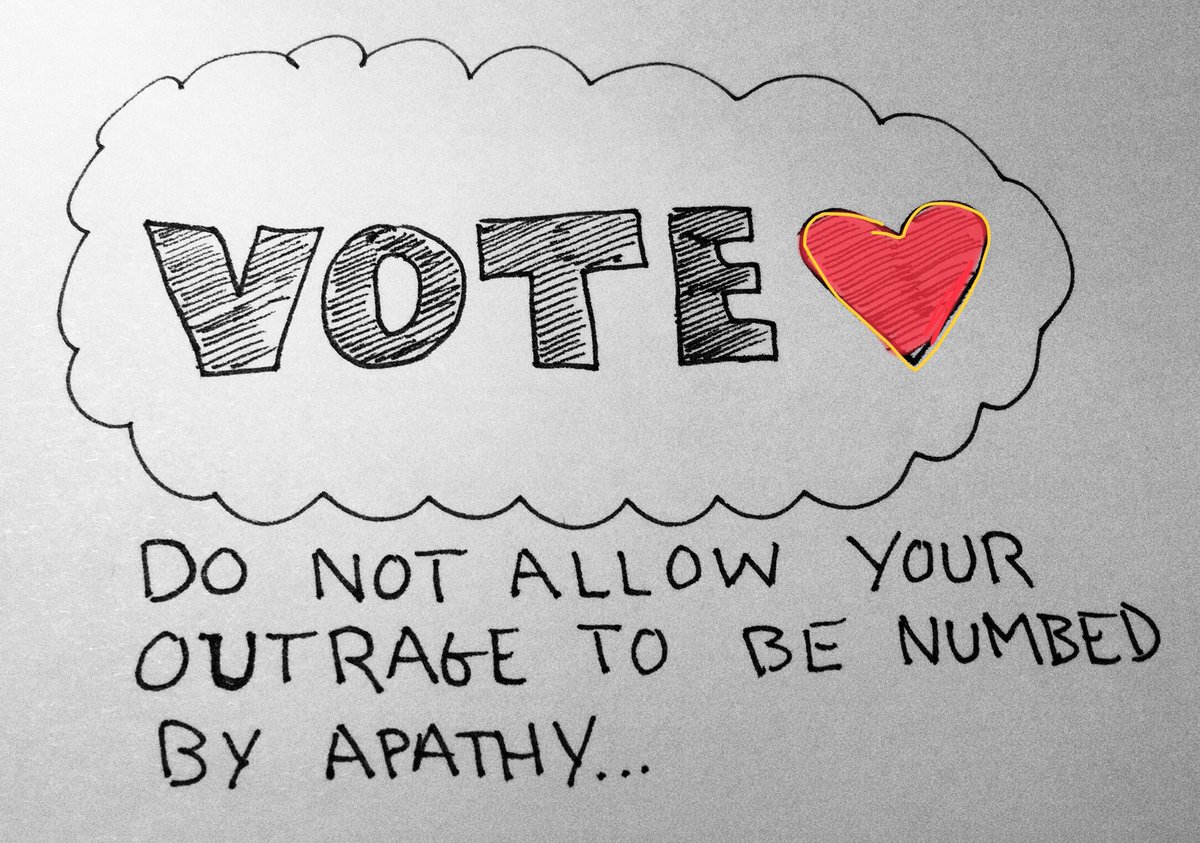 VOTE
DO NOT ALLOW YOUR
OUTRAGE TO BE NUMBED
BY APATHY...